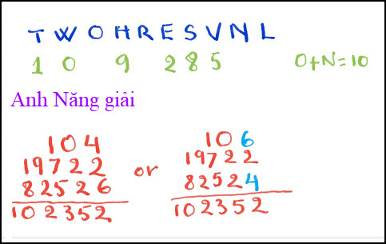 T W O H R E S V N L
1 0 9 2 8 5 O+N=10
Anh Năng giải
104
19722
82526
102352
or
106
19722
82524
102352